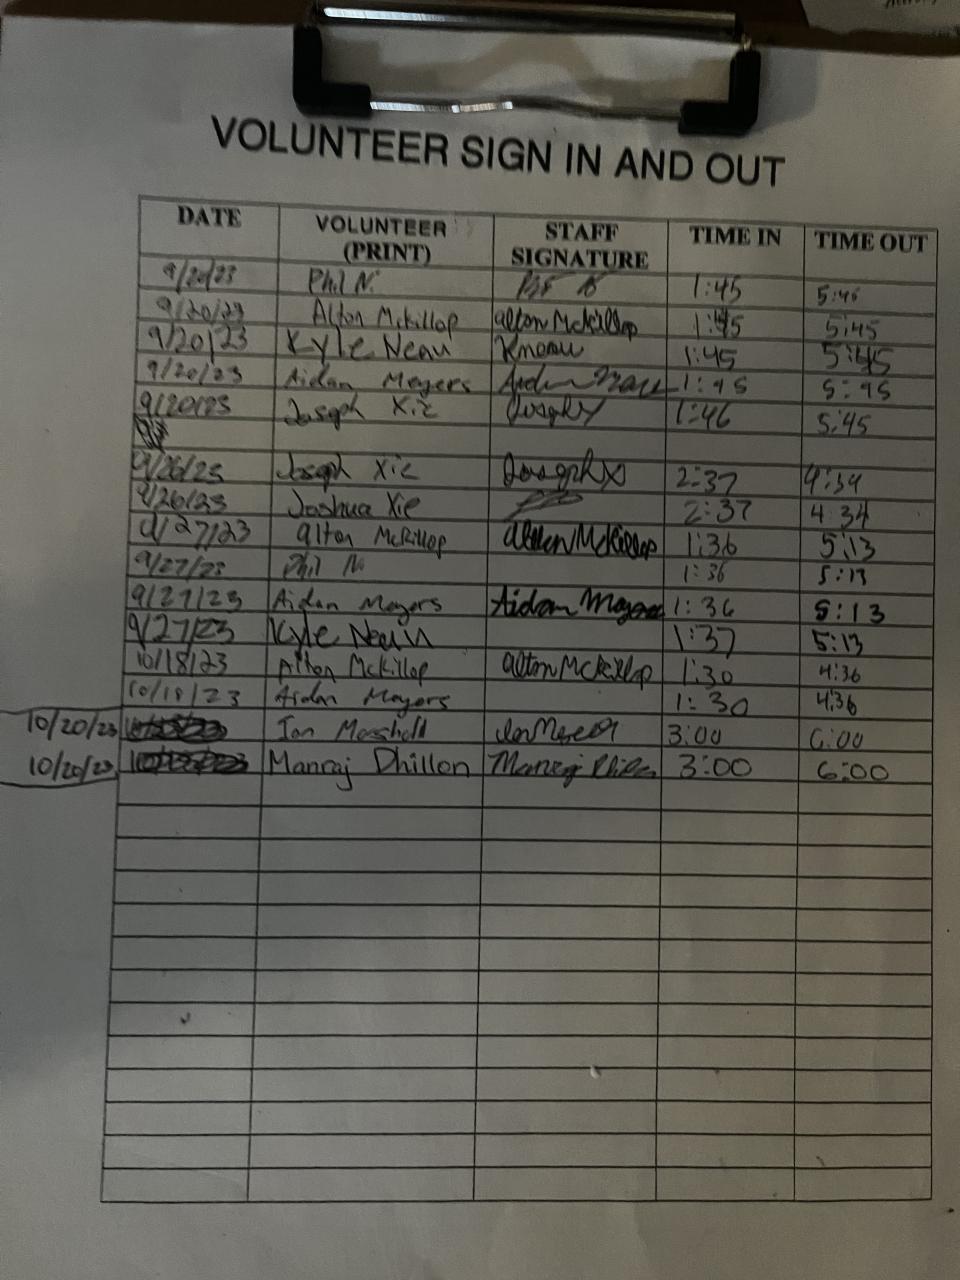 VOLUNTEER SIGN IN AND OUT
DATE VOLUNTEER (PRINT) STAFF SIGNATURE TIME IN TIME OUT
9/20/23 Phil N. 1:45 5:45
9/20/23 Alton Mckillop alton Mckillop 1:45 5:45
9/20/23 Kyle Neau Kneau 1:45 5:45
9/20/23 Aidan Meyers Aidan 1:45 5:45
9/20/23 Joseph Xie Joseph X 1:46 5:45
9/26/23 Joseph Xie Joseph X 2:37 4:34
9/26/23 Joshua Xie 2:37 4:34
9/27/23 alton McKillop alton McKillop 1:36 5:13
9/27/23 Phil N 1:36 5:13
9/27/23 Aidan Meyers Aidan Meyers 1:36 5:13
9/27/23 Kyle Neau 1:37 5:13
10/18/23 Alton McKillop alton McKillop 1:30 4:36
10/18/23 Aidan Mayers 1:30 4:36
10/20/23 Ian Marshall 3:00 6:00
10/20/23 Manraj Dhillon Manraj Dhillon 3:00 6:00